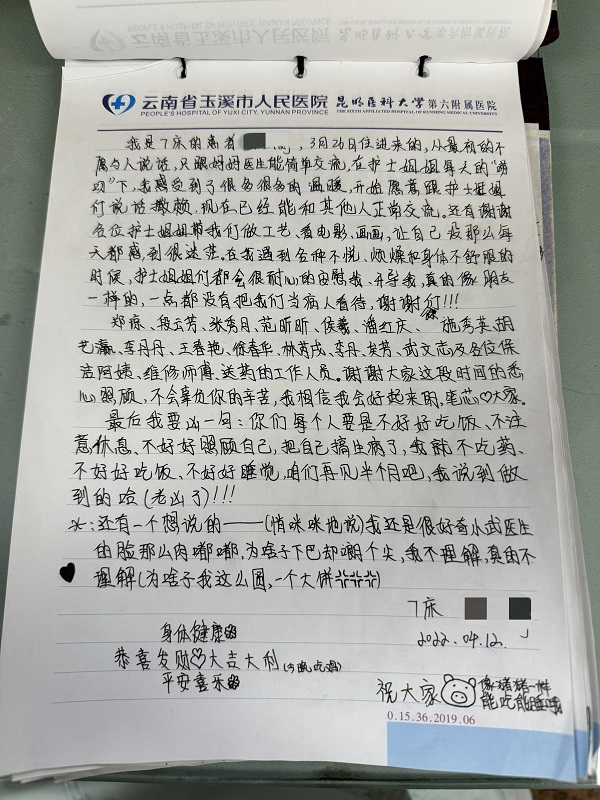 云南省玉溪市人民医院 昆明医科大学第六附属医院
PEOPLE'S HOSPITAL OF YUXI CITY, YUNNAN PROVINCE THE SIXTH AFFILIATED HOSPITAL OF KUNMING MEDICAL UNIVERSITY
我是7床的患者 ，3月26日住进来的，从最初的不
愿与人说话，只跟妈妈医生能简单交流，在护士姐姐每天的“唠
叨”下，我感受到了很多很多的温暖，开始愿意跟护士姐姐
们说话撒娇，现在已经能和其他人正常交流。还有谢谢
各位护士姐姐带我们做工艺、看电影、画画，让自己没那么每
天都感到很迷茫。在我遇到各种不悦、烦燥和身体不舒服的
时候，护士姐姐们都会很耐心的安慰我、开导我，真的像朋友
一样的，一点都没有把我们当病人看待，谢谢你们!!!
郑琼、段云芳、张秀月、范昕昕、侯羲、潘红庆、施秀英、胡
艺瀛、李丹丹、王春艳、徐春华、林茑成、李丹、吴芳、武文志及各位保
洁阿姨、维修师傅、送药的工作人员。谢谢大家这段时间的悉
心照顾，不会辜负你的辛苦，我相信我会好起来的，笔芯♡大家。
最后我要凶一句：你们每个人要是不好好吃饭、不注
意休息、不好好照顾自己，把自己搞生病了，我就不吃药、
不好好吃饭、不好好睡觉，咱们再见半个月吧，我说到做
到的哈(老凶了)!!!
※：还有一个想说的——(悄咪咪地说)我还是很好奇小武医生
的脸那么肉嘟嘟，为啥子下巴却嘲个尖，我不理解，真的不
理解(为啥子我这么圆，一个大饼)
7床
2022.04.12.
身体健康
恭喜发财♡大吉大利(今晚吃鸡)
平安喜乐
祝大家 像猪猪一样
能吃能睡哦
0.15.36.2019.06